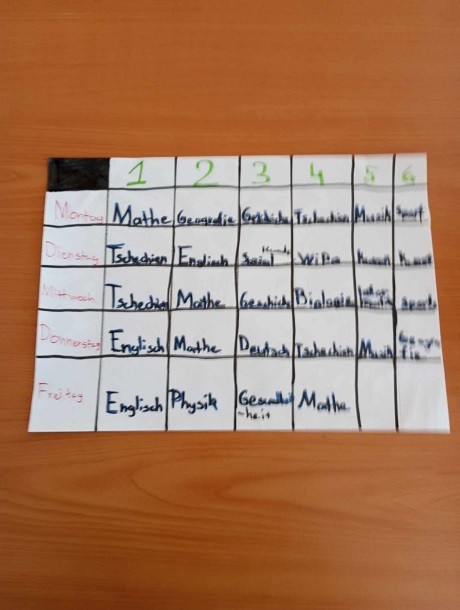 1 2 3 4 5 6
Montag Mathe Geogrofie Geschichte Tschechien Musik Sport
Dienstag Tschechien Englisch WiPa Kunst Kunst
Mittwoch Tschechien Mathe Geschichte Biologie Sport
Donnerstag Englisch Mathe Deutsch Tschechisch Musik
Freitag Englisch Physik Gesundheit Mathe
-heit